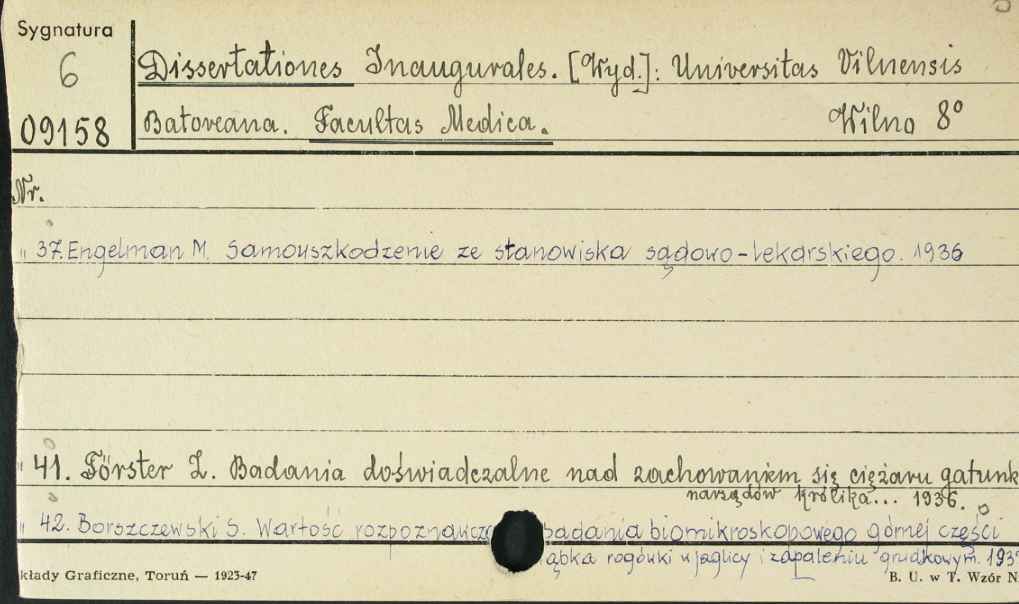 Sygnatura
6
09158
Dissertationes Inaugurales. [Wyd.]: Universitas Vilnensis
Batoreana. Facultas Medica. Wilno 8°
Nr.
" 37. Engelman M. Samouszkodzenie ze stanowiska sądowo-lekarskiego. 1936
" 41. Förster Z. Badania doświadczalne nad zachowaniem się ciężaru gatunk
narządów królika... 1936.
" 42. Borszczewski S. Wartość rozpoznawcz badania biomikroskopowego górnej części
ąbka rogówki w jaglicy i zapaleniu grudkowym. 193
kłady Graficzne, Toruń — 1923-47
B. U. w T. Wzór N